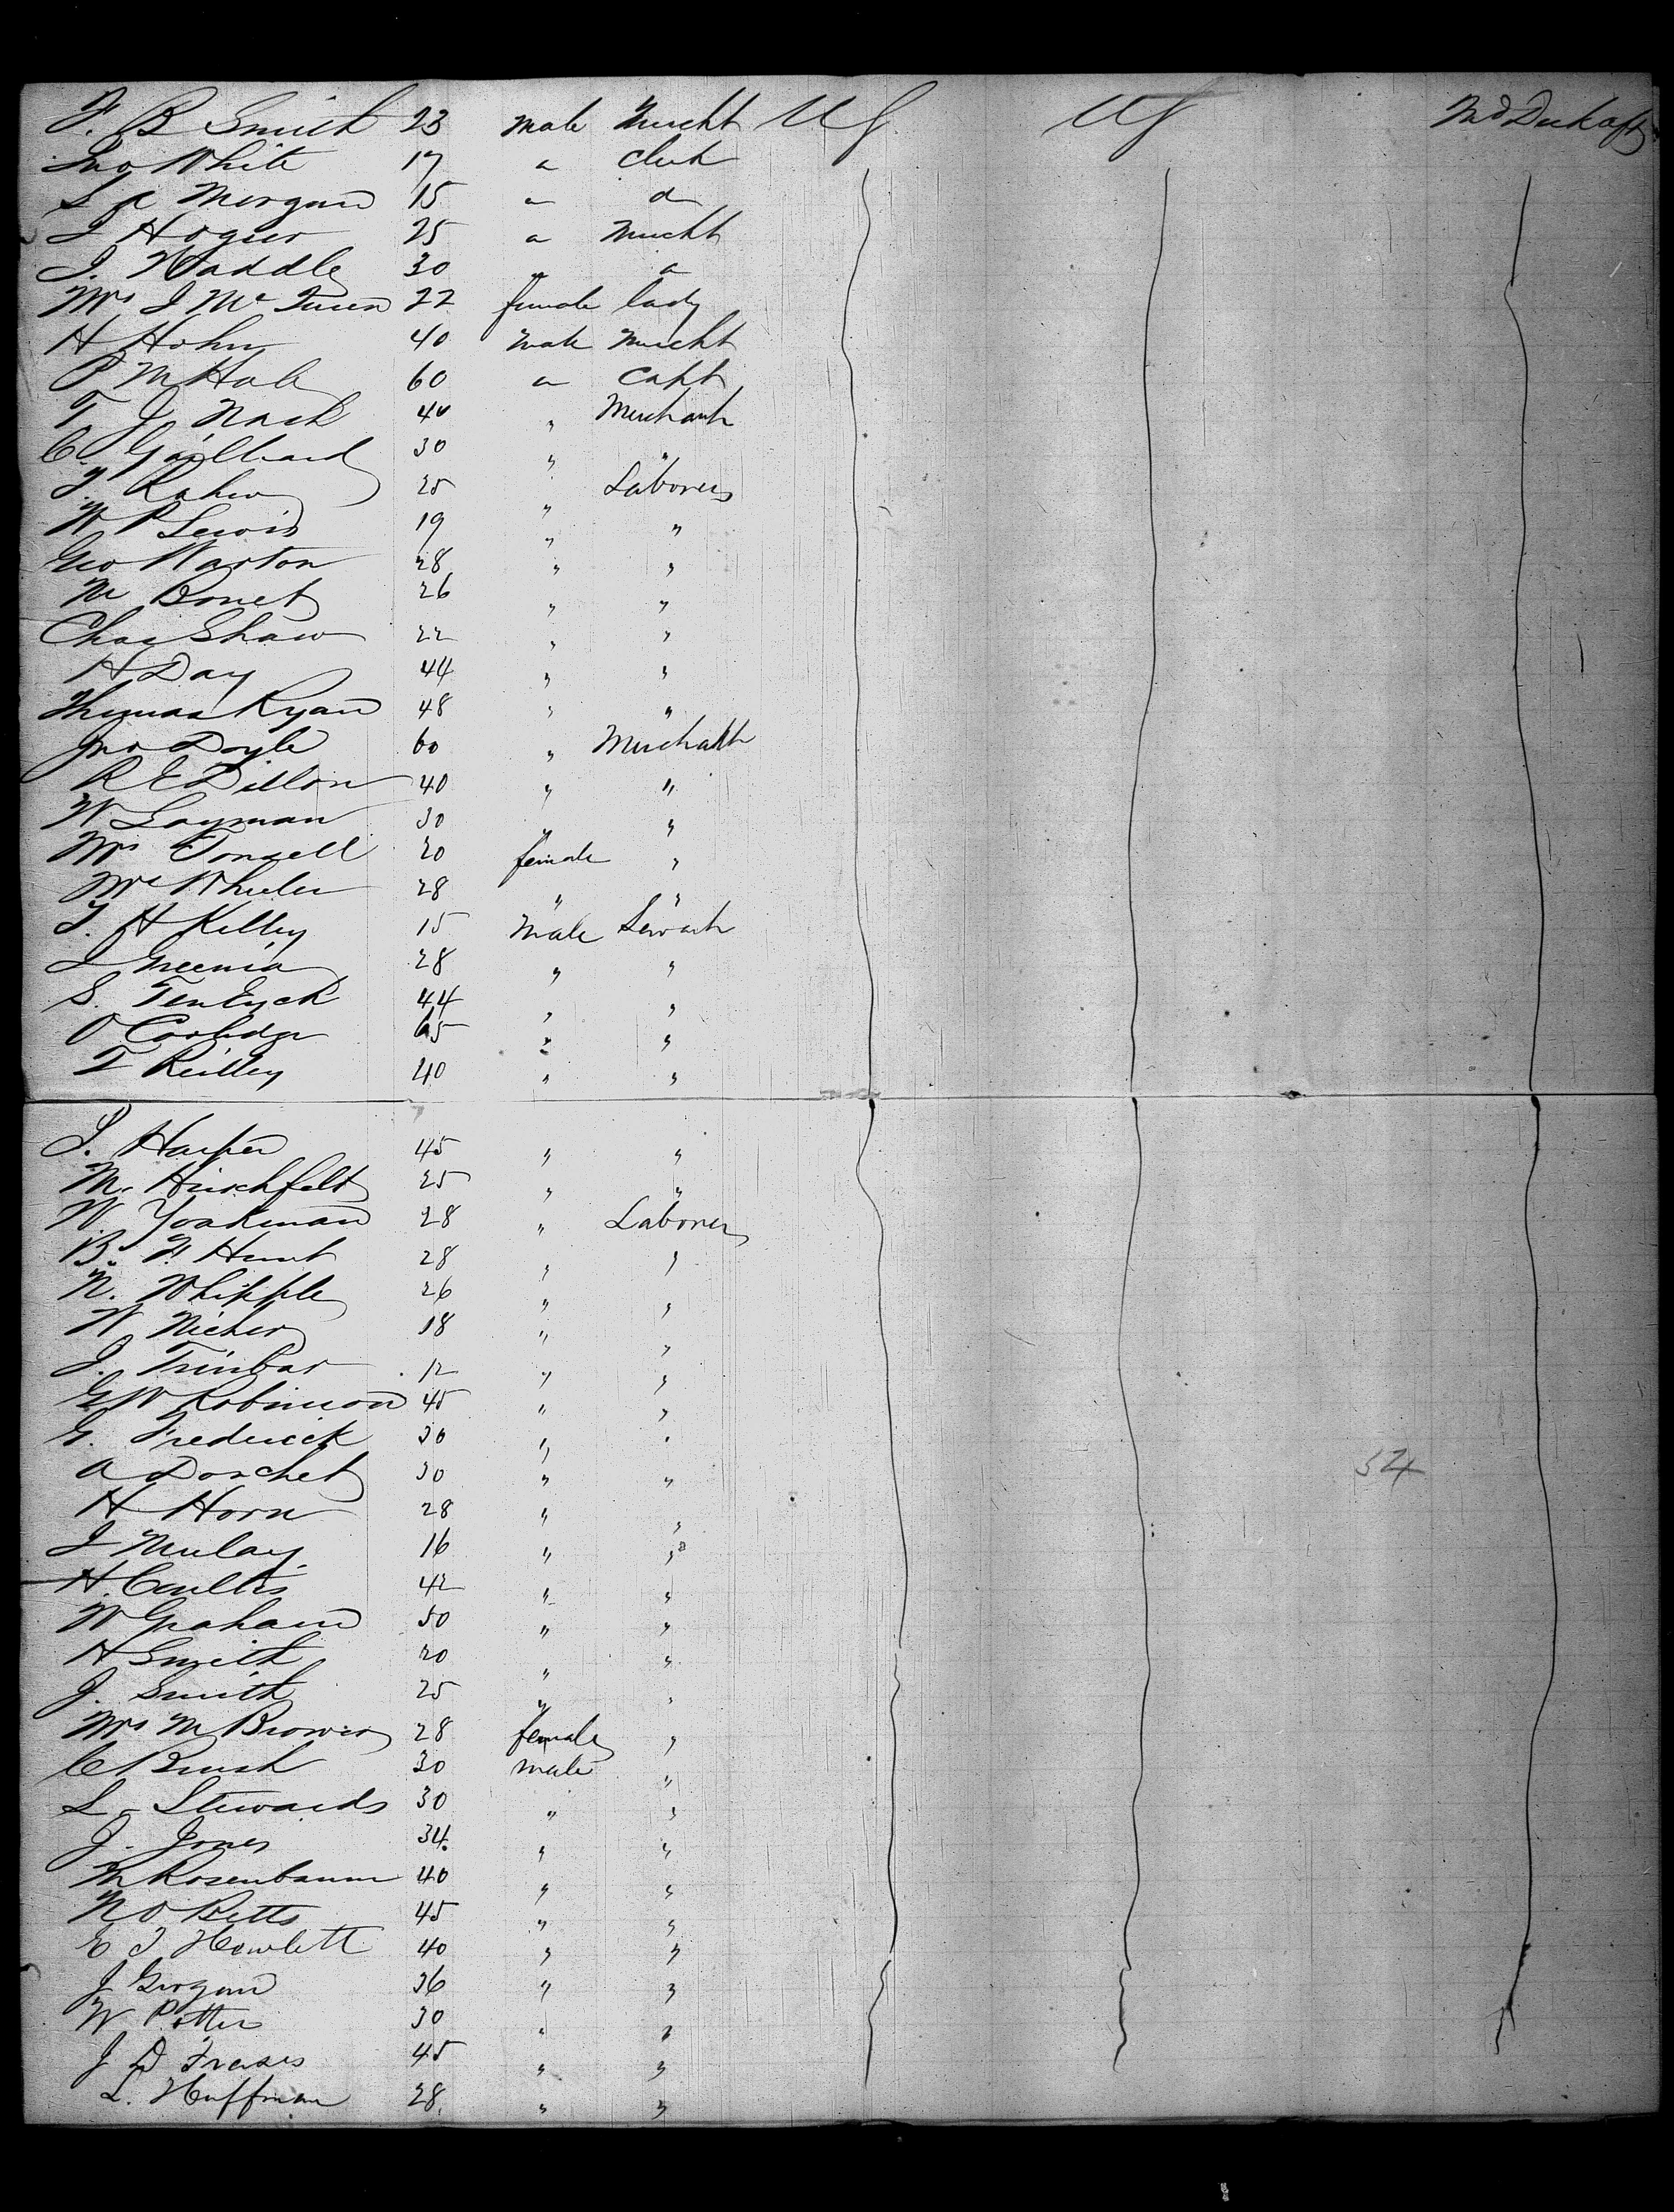 F. B Smith 23 male Mercht US US Md Deck aft
Jno White 17 " Clerk
S A Morgan 15 " "
J Hogur 25 " Mercht
J. Waddle 30 " "
Mrs J Mc 22 female lady
H Hohn 40 male Mercht
P M Hale 60 " Capt
T J Nash 40 " Merchant
C. Gailliard 30 " "
25 " Laborers
W P Lewis 19 " "
Geo Warton 28 " "
M Bonet 26 " "
Chas Shaw 22 " "
H Day 44 " "
Thomas Ryan 48 " "
Jno Doyle 60 " Merchant
R E Dillon 40 " "
W Layman 30 " "
Mrs Tonsell 20 female "
Mrs Wheeler 28 " "
T. H Kelley 15 male Servant
J Greenia 28 " "
S. TenEyck 44 " "
O Coolidge 65 " "
T Reilley 40 " "
S. Harper 45 " "
M. Hirschfelt 25 " "
W. Yoakman 28 " Laborer
B. F. Hunt 28 " "
N. Whipple 26 " "
W 18 " "
J. Trinbar 12 " "
G W Robinson 45 " "
G. Frederick 30 " "
A Dorchet 30 " "
54
H Horn 28 " "
J Mulay 16 " "
H. Coulter 42 " "
W Graham 50 " "
H Smith 20 " "
J. Smith 25 " "
Mrs M Brown 28 female "
C Brush 30 male "
L Stewards 30 " "
J. Jones 34. " "
M Rosenbaum 40 " "
N O Betts 45 " "
E T Howlett 40 " "
J Grogan 36 " "
W Potter 30 " "
J D Frases 45 " "
L. Huffman 28. " "